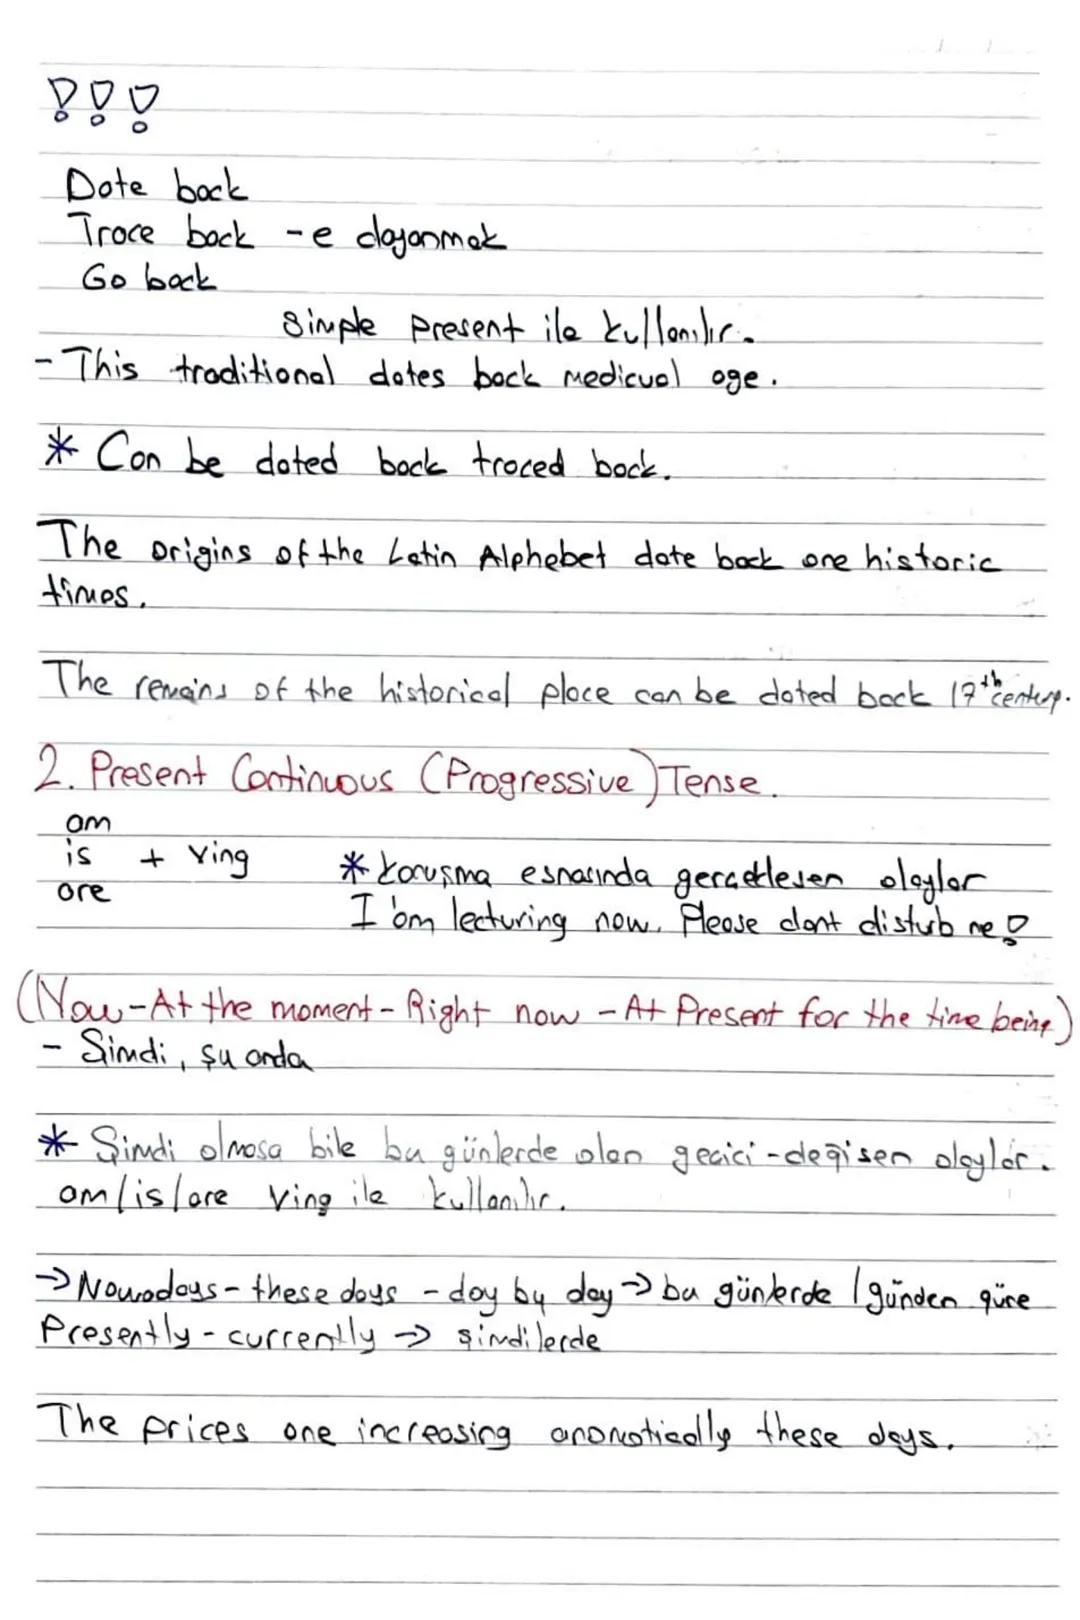 !!!
Date back
Trace back -e dayanmak
Go back
Simple present ile kullanılır.
- This traditional dates back medicual age.
* Can be dated back traced back.
The origins of the Latin Alphabet date back are historic
times.
The remains of the historical place can be dated back 17th century.
2. Present Continuous (Progressive) Tense.
am
is + Ving
are
* konuşma esnasında gerçekleşen olaylar
I'am lecturing now. Please dont disturb me!
(Now - At the moment - Right now - At Present for the time being)
- Şimdi, şu anda
* Şimdi olmasa bile bu günlerde olan gecici - değisen olaylar.
am/is/are Ving ile kullanılır.
→ Nowadays - these days - day by day → bu günlerde / günden güne
Presently - currently → şimdilerde
The prices are increasing these days.